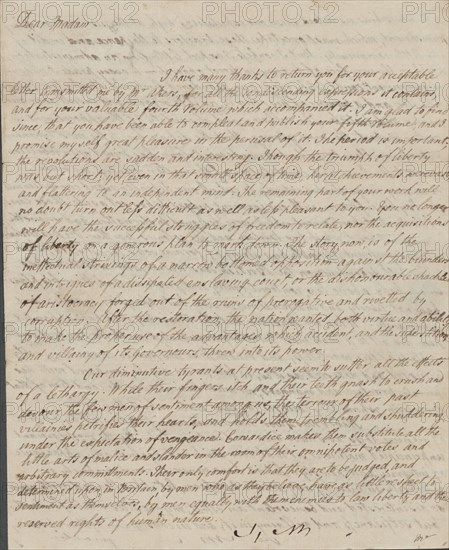 Dear Madam
I have many thanks to return you for your acceptable
letter transmitted me by Mr Wears, for all the condescending expressions it contains
and for your valuable fourth Volume which accompanied it. I am glad to find
since, that you have been able to compleat and publish your fifth Volume, and I
promise myself great pleasure in the perusal of it. The period is important,
the revolutions are sudden and interesting. Though the triumph of liberty
was but short, yet even in that short space of time
and flattering to an independent mind. The remaining part of your work will
no doubt turn out less difficult as well as less pleasant to you. You no longer
will have the successful struggles of freedom to relate, nor the acquisitions
of liberty on a generous plan to mark down. The story, now, is of the
ineffectual strivings of a narrow
and intrigues of a dissipated enslaving court, or the dishonourable shackles
of aristocracy forged out of the ruins of prerogative and rivetted by
corruption. After the restoration, the nation wanted both virtue and ability
to make the proper use of the advantages which accident, and the
and villainy of its governours, threw into its power.
Our diminutive tyrants at present seem to suffer all the effects
of a lethargy. While their fingers itch and their teeth gnash to crush and
devour the few men of sentiment among us, the terrour of their past
villainies petrifies their hearts, and holds them trembling and shuddering
under the expectation of vengeance. Cowardice makes them substitute all the
little arts of malice and slander in the room of their omnipotent votes and
arbitrary commitments. Their only comfort is that they are to be judged, and
determined upon in Britain, by men who as they believe have as little respect to
sentiment as themselves, by men equally with them enemies to law, liberty and the
reserved rights of human nature.
PHOTO12